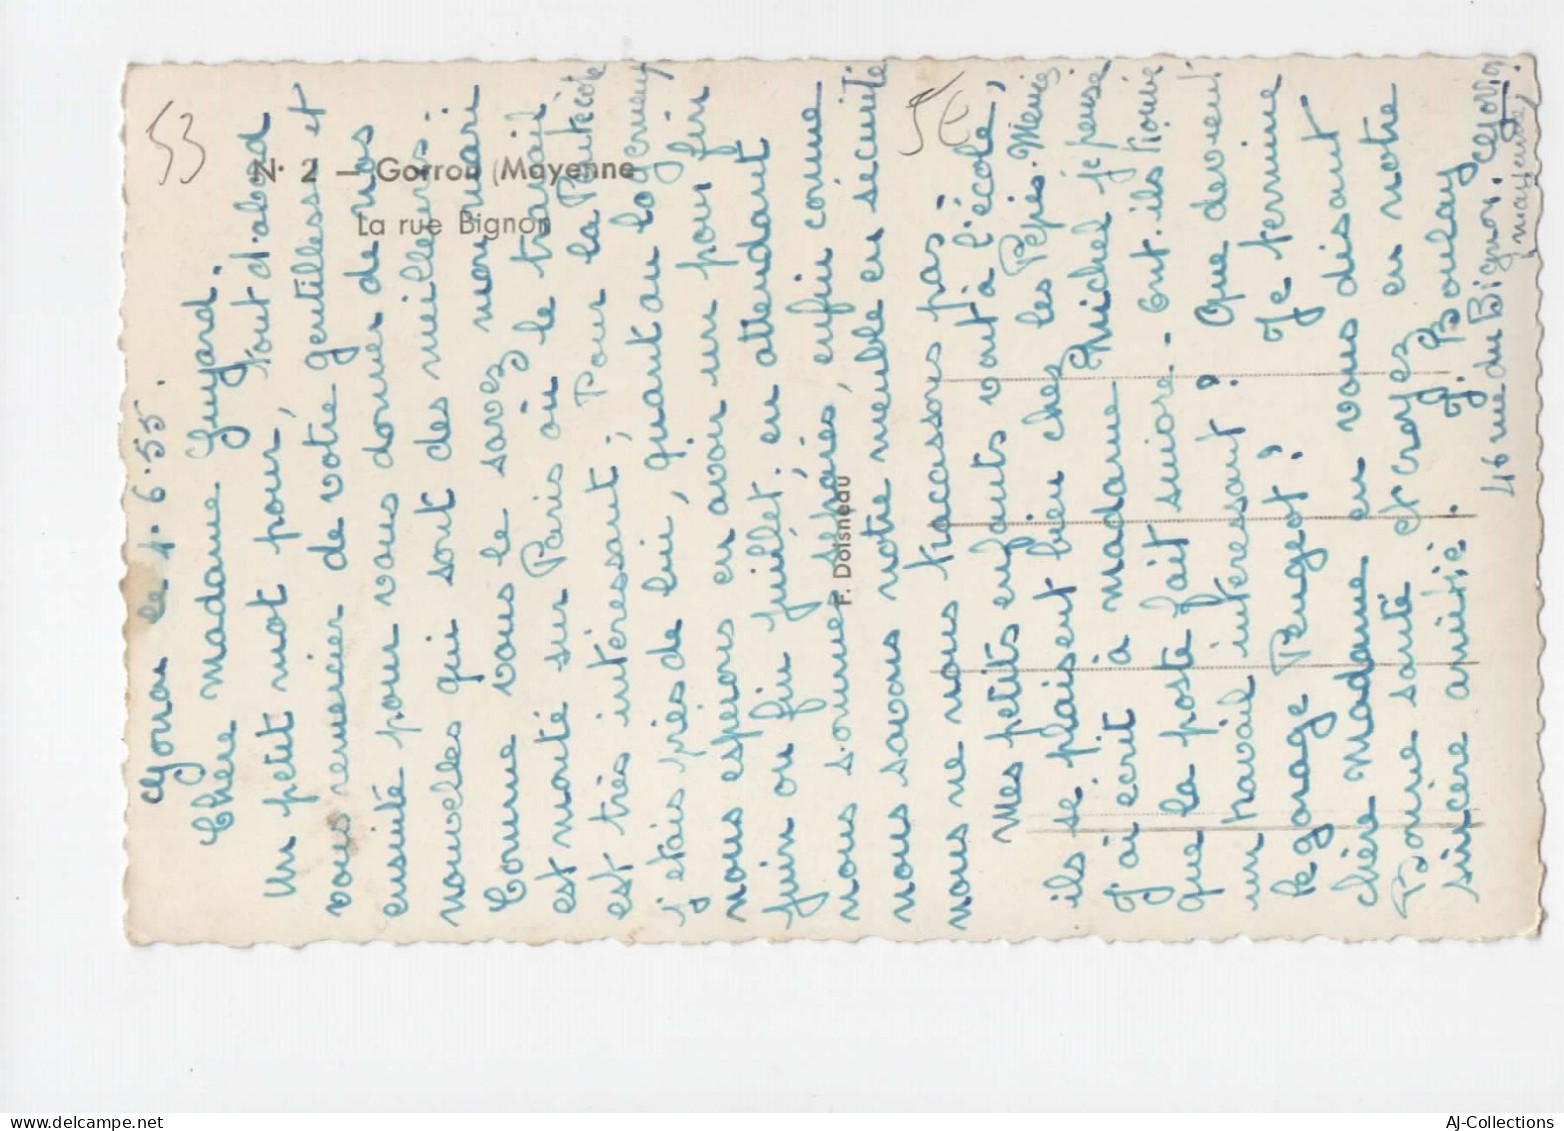 53
5€
N. 2 — Gorron (Mayenne
La rue Bignon
F. Doisneau
le 4.6.55.
Chère madame Guyard.
Un petit mot pour, tout d'abord
vous remercier de votre gentillesse et
ensuite pour vous donner de nos
nouvelles qui sont des meilleures.
Comme vous le savez mon mari
est monté sur Paris où le travail
est très intéressant; Pour la Pentecôte
j'étais près de lui, quant au logement
nous espérons en avoir un pour fin
juin ou fin juillet; en attendant
nous sommes séparés, enfin comme
nous savons notre meuble en sécurité
nous ne nous tracassons pas.
Mes petits enfants vont à l'école,
ils se plaisent bien chez les Pépés. Mémés
J'ai écrit à madame Michel je pense
que la poste fait suivre. Ont.ils trouvé
un travail interessant? Que devient
le garage Peugeot? Je termine
chère Madame en vous disant
Bonne santé et croyez en notre
sincère amitié. J. Boulay
46 rue du Bignon.
Mayenne.
AJ-Collections